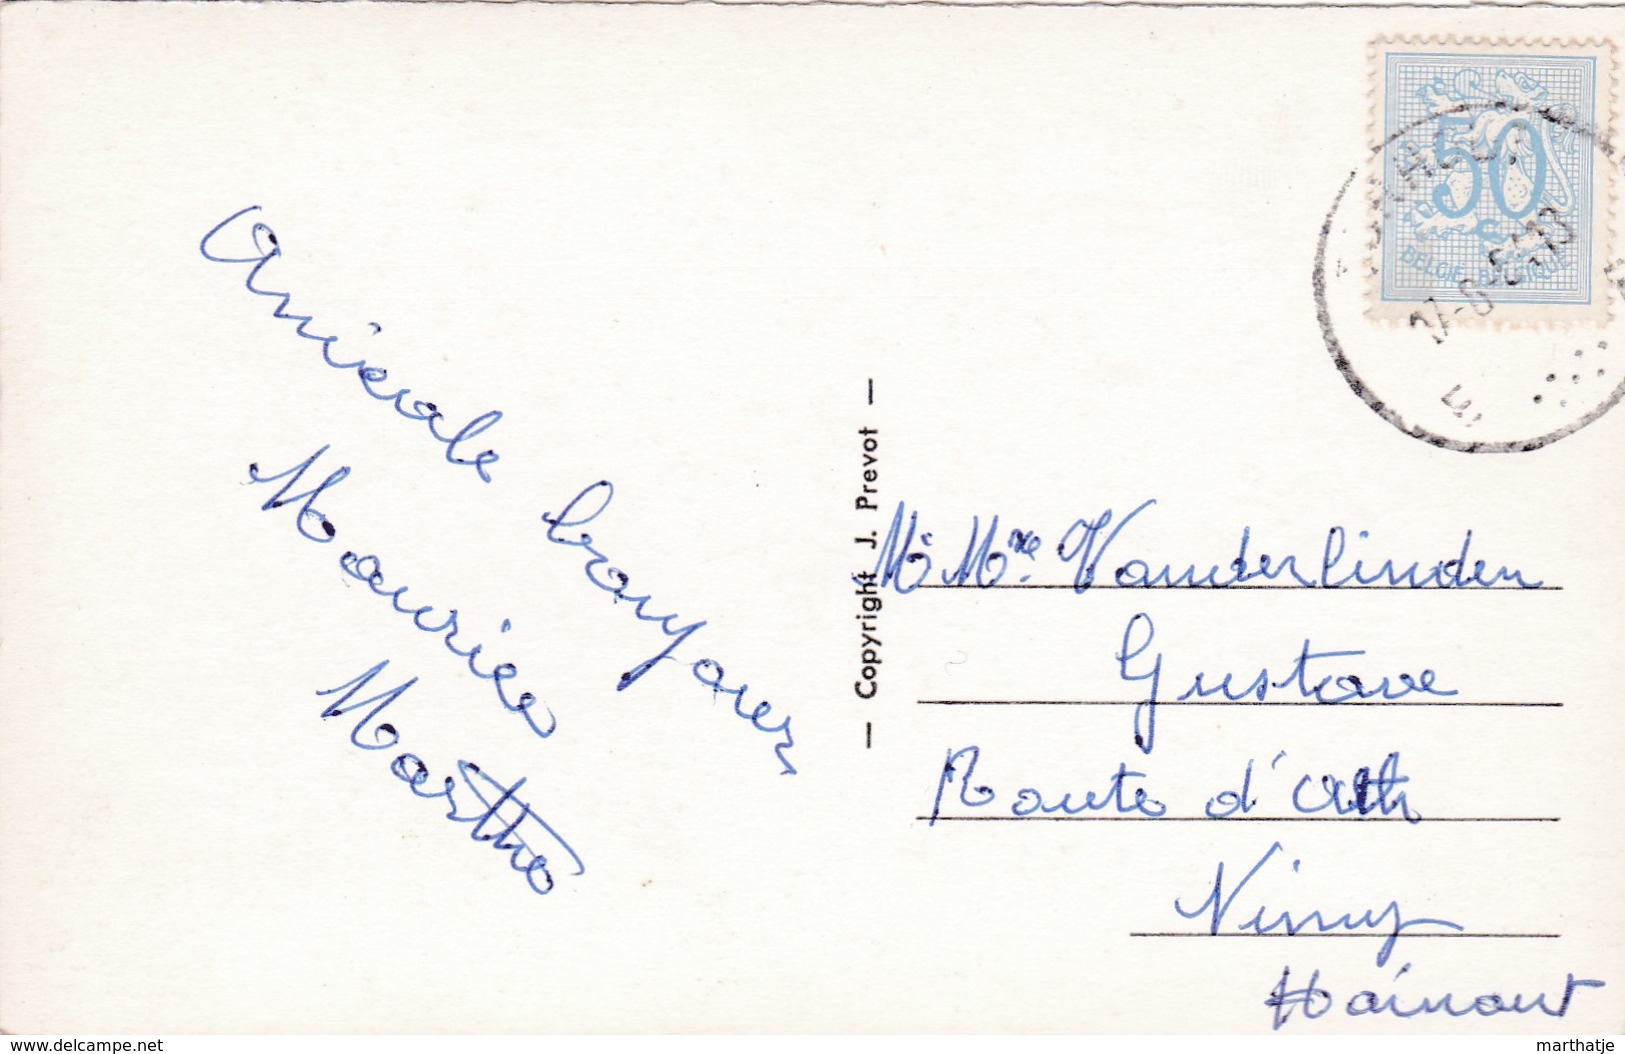 Amicale bonjour
Maurice
Marthe
— Copyright J. Prevot —
Mr Mme Vanderlinden
Gustave
Route d'Ath
Nimy
Hainaut
50
c
BELGIE-BELGIQUE
17-8
-13
www.delcampe.net
marthatje